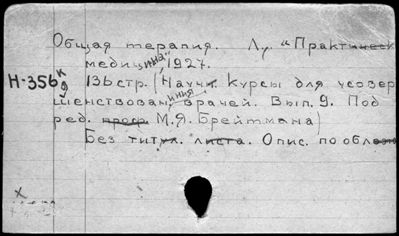 Общая терапия. Л., "Практическ
медицина" 1927.
Н-356 136 стр. (Научн. курсы для усовер
шенствования врачей. Вып. 9. Под
ред. проф. М.Я. Брейтмана)
Без титул. листа. Опис. по облож